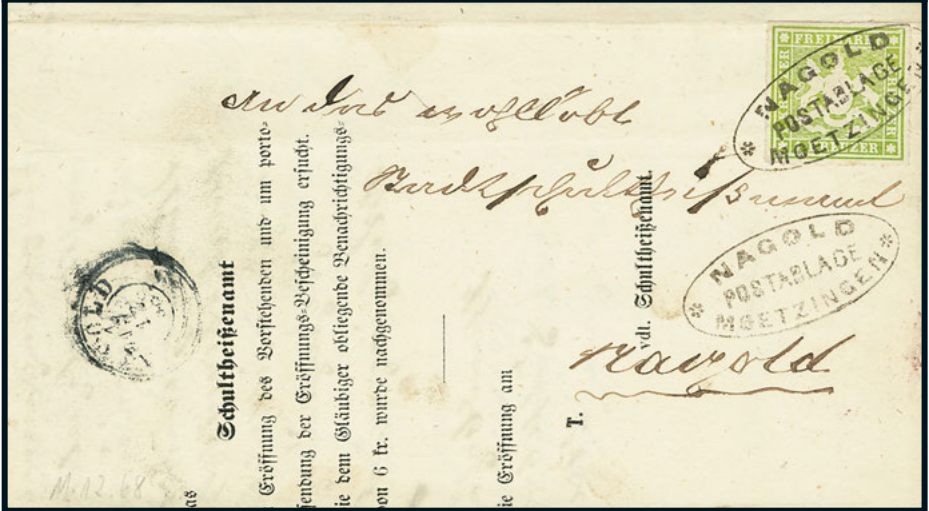 FREIMARKE
NAGOLD
POSTABLAGE
MOETZINGEN
An das wohllöbl
Stadtschultheißenamt
Nagold
NAGOLD
POSTABLAGE
MOETZINGEN
Schultheißenamt
Eröffnung des Vorstehenden und um porto-
sendung der Eröffnungs-Bescheinigung ersucht.
ie dem Gläubiger obliegende Benachrichtigungs-
von 6 kr. wurde nachgenommen.
ie Eröffnung am
T.
vdt. Schultheißenamt.
as